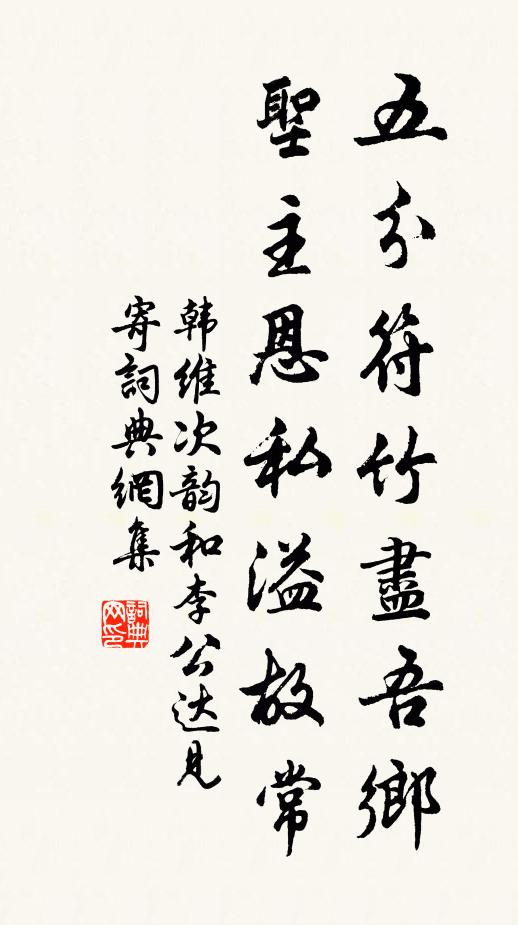 五分符竹盡吾鄉
聖主恩私溢故常
韩維次韵和李公达見
寄詞典網集
詞典
网印